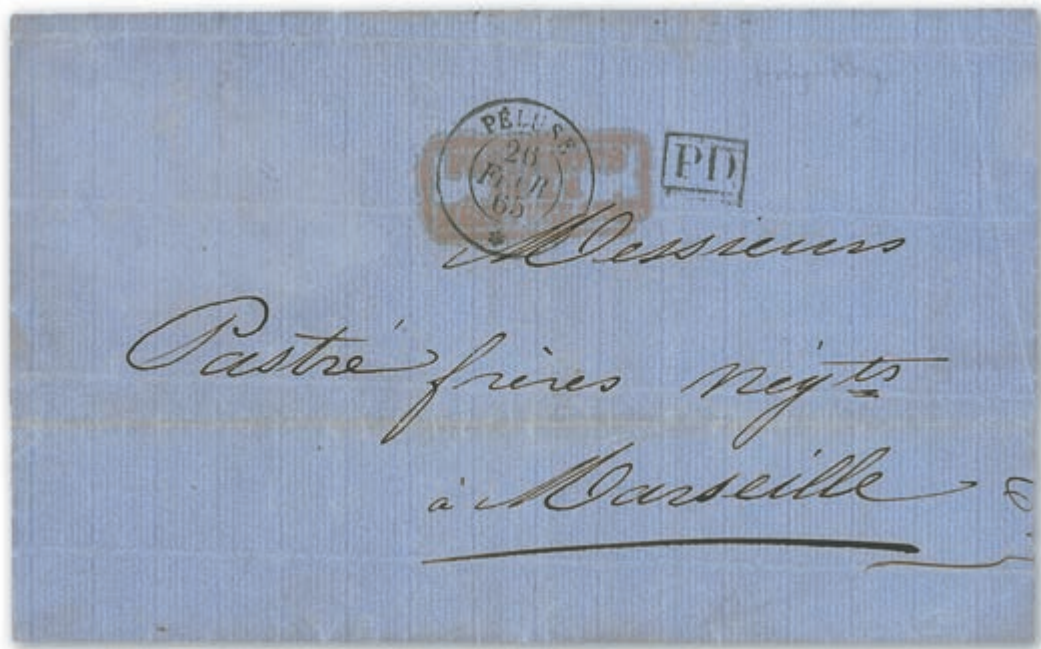 PÉLUSE
26
FEVR
65
PD
Messieurs
Pastré frères négts
à Marseille